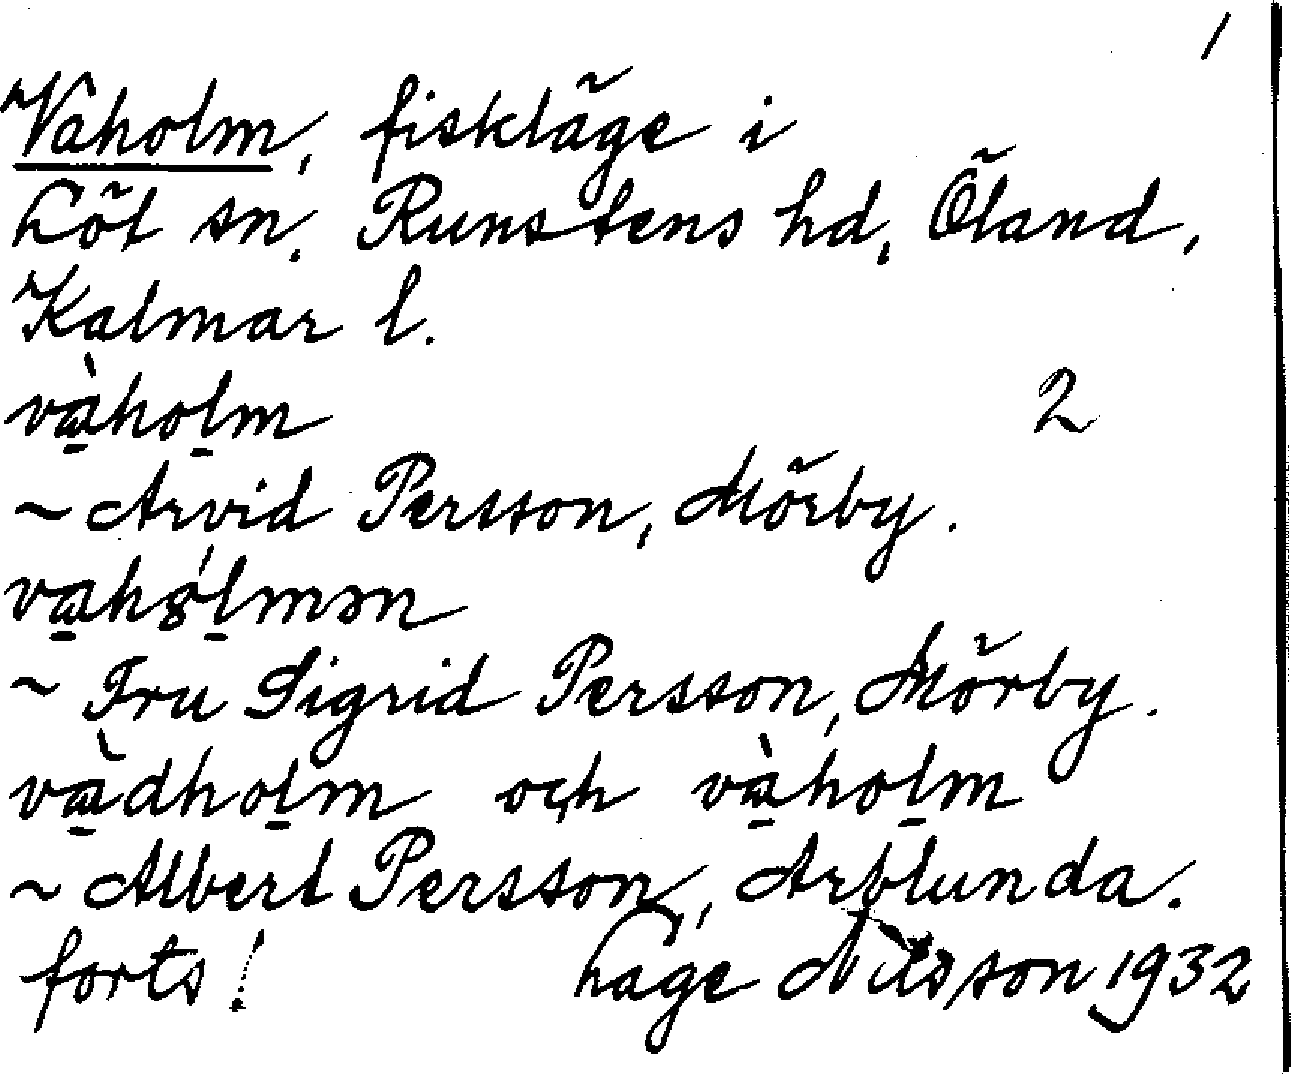 1
Vaholm, fiskläge i
Löt sn. Runstens hd, Öland,
Kalmar l.
vàholm 2
~ Arvid Persson, Mörby.
vahólmən
~ Fru Sigrid Persson, Mörby.
vàdholm och vàholm
~ Albert Persson, Arblunda.
forts! Hage Nilsson 1932